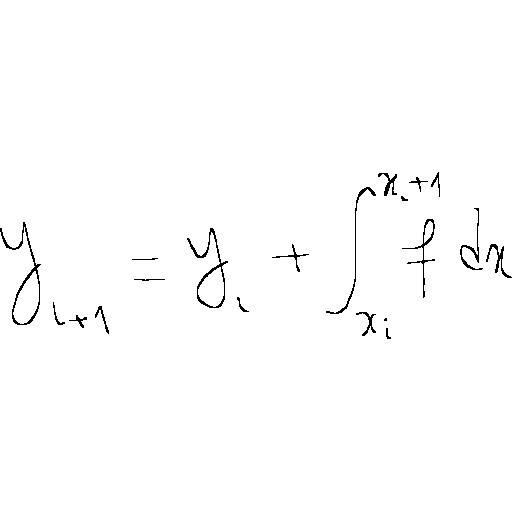 y_{i+1} = y_i + \int_{x_i}^{x_{i+1}} f dx